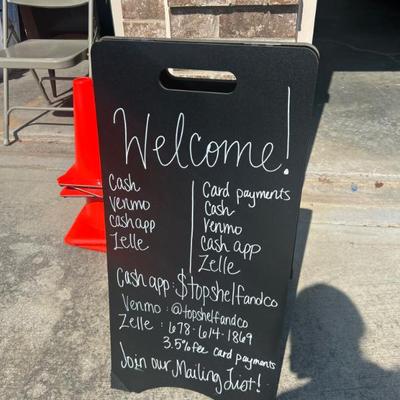 Welcome!
Cash
Venmo
cash app
Zelle
Card payments
Cash
Venmo
Cash app
Zelle
Cash app: $topshelfandco
Venmo: @topshelfandco
Zelle: 678-614-1869
3.5% fee card payments
Join our Mailing List!